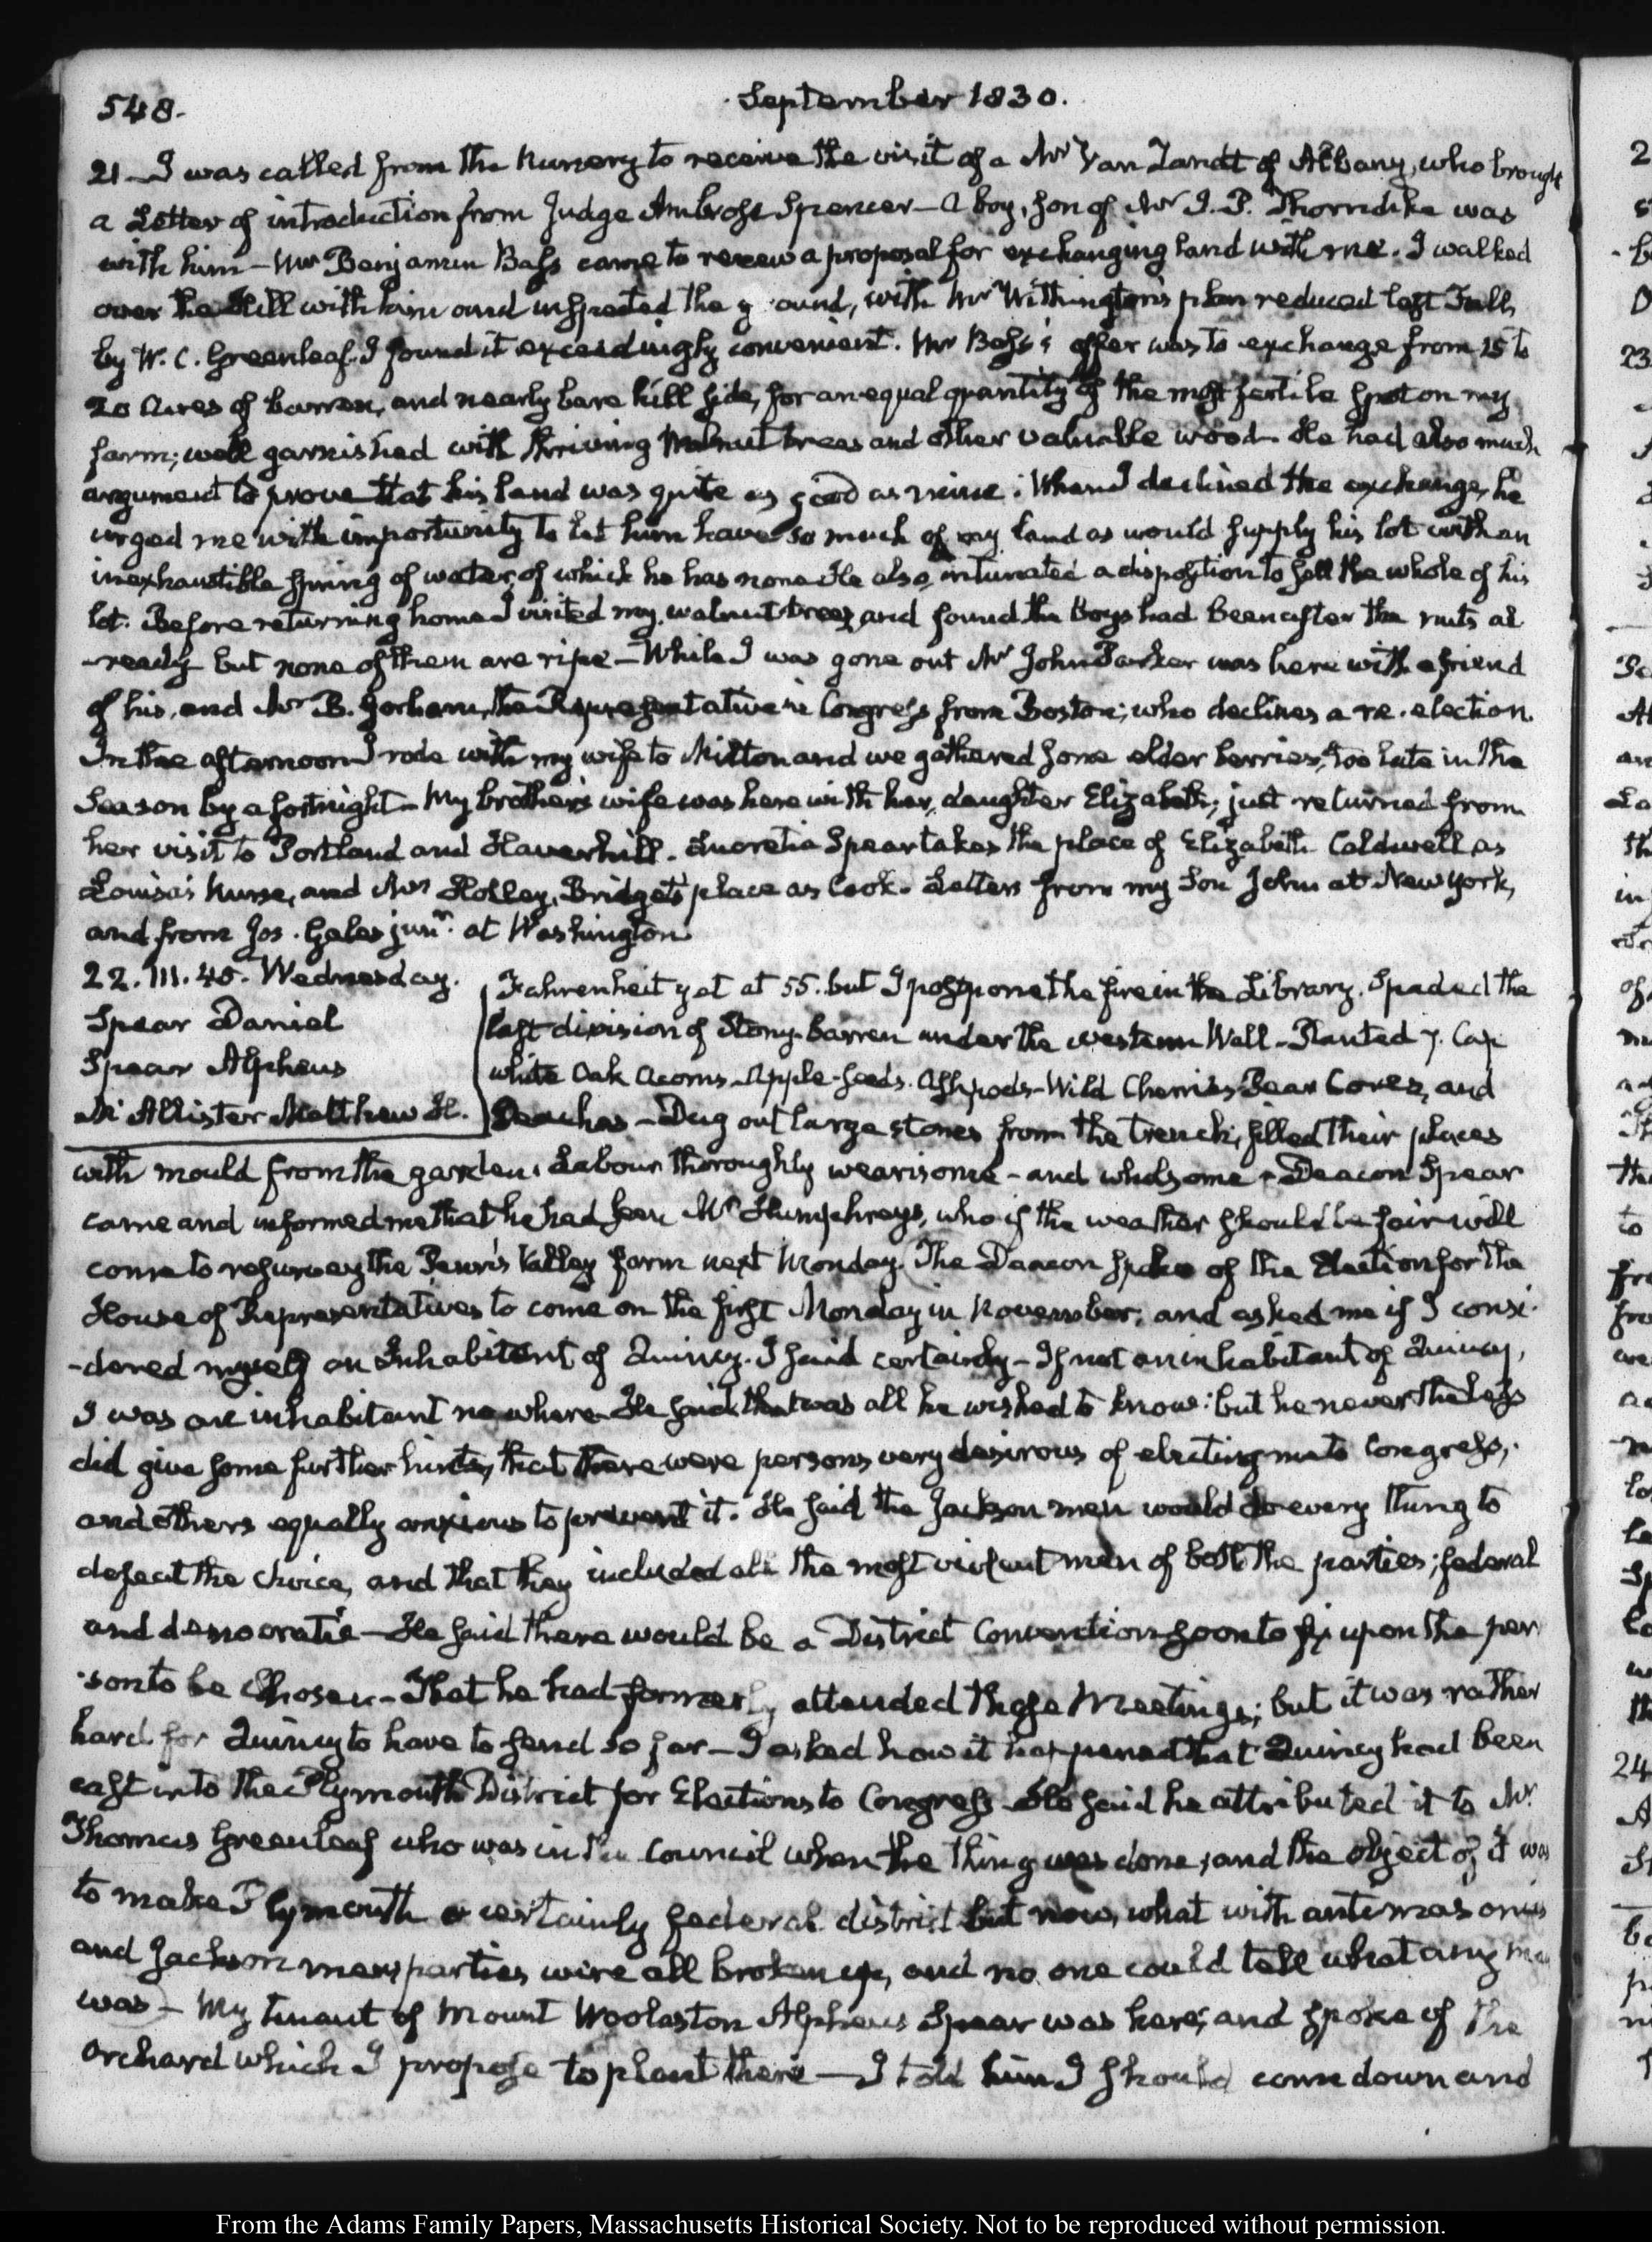 548.
September 1830.
21 — I was called from the Nursery to receive the visit of a Mr Van Zandt of Albany, who brought
a Letter of introduction from Judge Ambrose Spencer — A boy, son of Mr I. P. Thorndike was
with him — Mr Benjamin Bass came to renew a proposal for exchanging land with me. I walked
over the Hill with him and inspected the ground, with Mr Withington's plan reduced last Fall,
by W. C. Greenleaf. I found it exceedingly convenient. Mr Bass's offer was to exchange from 15 to
20 Acres of barren, and nearly bare hill side, for an equal quantity of the most fertile spot on my
farm; well garnished with thriving Walnut trees and other valuable wood. He had also much
argument to prove that his land was quite as good as mine: When I declined the exchange, he
urged me with importunity to let him have so much of my land as would supply his lot with an
inexhaustible spring of water, of which he has none. He also intimated a disposition to sell the whole of his
lot. Before returning home I visited my walnut trees, and found the boys had been after the nuts al
-ready but none of them are ripe — While I was gone out Mr John Parker was here with a friend
of his, and Mr B. Gorham, the Representative in Congress from Boston; who declines a re-election.
In the afternoon I rode with my wife to Milton and we gathered some elder berries, too late in the
Season by a fortnight — My brother's wife was here with her daughter Elizabeth; just returned from
her visit to Portland and Haverhill. Lucretia Spear takes the place of Elizabeth Caldwell, as
Louisa's Nurse, and Mrs Holley, Bridget's place as Cook. Letters from my Son John at New York,
and from Jos. Gales junr. at Washington
22. III. 45. Wednesday.
Spear Daniel
Spear Alpheus
McAllister Matthew H.
Fahrenheit yet at 55. but I postpone the fire in the Library. Spaded the
last division of Stony-barren under the western Wall — Planted 7. Cap
white Oak Acorns — Apple-seeds. Ashpods — Wild Cherries, Pear Cores, and
Peaches — Dug out large stones from the trench; filled their places
with mould from the garden. Labour thoroughly wearisome — and wholsome — Deacon Spear
came and informed me that he had seen Mr Humphreys, who if the weather should be fair will
come to resurvey the Penn's Valley farm next Monday. The Deacon spoke of the Election for the
House of Representatives to come on the first Monday in November; and asked me if I consi-
-dered myself an Inhabitant of Quincy. I said certainly — If not an inhabitant of Quincy,
I was an inhabitant no where. He said that was all he wished to know: but he nevertheless
did give some further hints, that there were persons very desirous of electing me to Congress,
and others equally anxious to prevent it. He said the Jackson men would do every thing to
defeat the choice, and that they included all the most violent men of both the parties; federal
and democratic — He said there would be a District Convention soon to fix upon the per
-son to be Chosen — That he had formerly attended these Meetings; but it was rather
hard for Quincy to have to send so far — I asked how it happened that Quincy had been
cast into the Plymouth District for Elections to Congress. He said he attributed it to Mr
Thomas Greenleaf who was in the Council when the thing was done, and the object of it was
to make Plymouth a certainly federal district but now, what with antimasonry
and Jackson men, parties were all broken up, and no one could tell what any man
was — My tenant of Mount Woolaston Alpheus Spear was here; and spoke of the
Orchard which I propose to plant there — I told him I should come down and
From the Adams Family Papers, Massachusetts Historical Society. Not to be reproduced without permission.